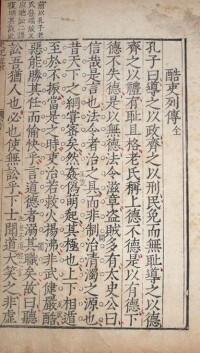 酷吏列傳
孔子曰導之以政齊之以刑民免而無恥導之以德
齊之以禮有恥且格老氏稱上德不德是以有德下
德不失德是以無德法令滋章盜賊多有太史公曰
信哉是言也法令者治之具而非制治清濁之源也
昔天下之網嘗密矣然姦偽萌起其極也上下相遁
至於不振當是之時吏治若救火揚沸非武健嚴酷
惡能勝其任而愉快乎言道德者溺其職矣故曰聽
訟吾猶人也必也使無訟乎下士聞道大笑之非虛